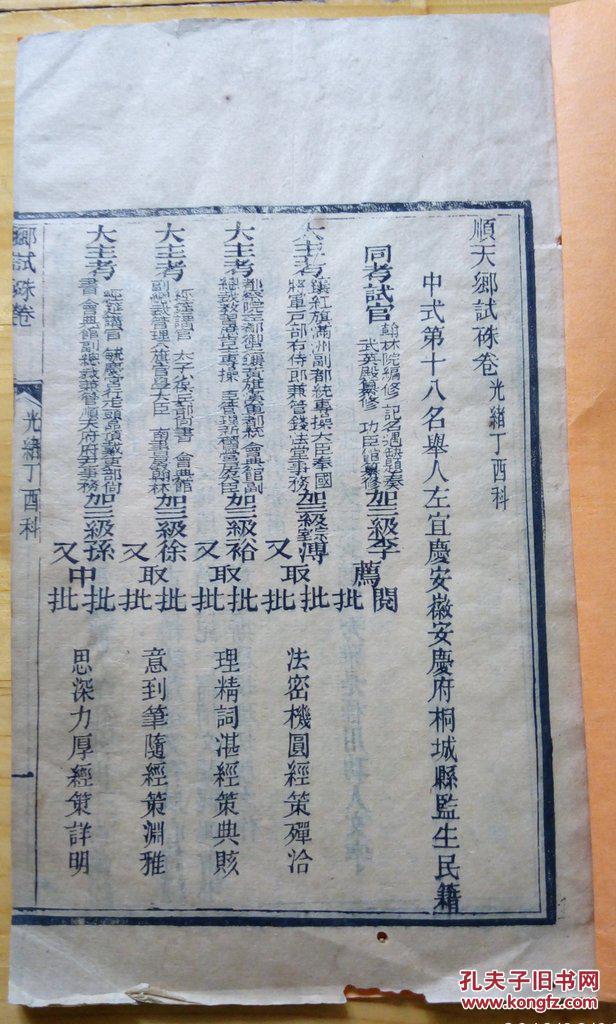 順天鄉試硃卷 光緒丁酉科
中式第十八名舉人左宜慶安徽安慶府桐城縣監生民籍
同考試官 翰林院編修 記名遇缺題奏 武英殿纂修 功臣館纂修 加三級李 薦閱批
大主考 鑲紅旗滿洲副都統專操大臣奉國將軍戶部右侍郎兼管錢法堂事務 加三級宗室溥 批 又取批 法密機圓經策殫洽
大主考 都察院左都御史鑲黃旗漢軍都統 會典館副總裁 加三級裕 批 又取批 理精詞湛經策典賅
大主考 經筵講官 太子少保兵部尚書 會典館副總裁管理八旗官學大臣 南書房翰林 加三級徐 批 又取批 意到筆隨經策淵雅
大主考 經筵講官 毓慶宮行走頭品頂戴吏部尚書 會典館副總裁兼管順天府府尹事務 加三級孫 批 又中批 思深力厚經策詳明
鄉試硃卷
光緒丁酉科
一
孔夫子旧书网
www.kongfz.com